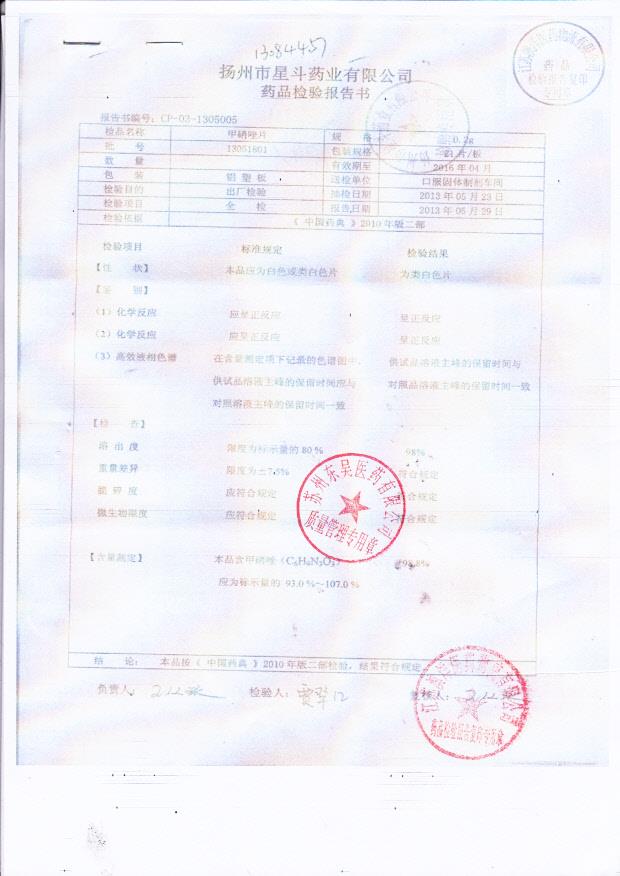 13084457
扬州市星斗药业有限公司
药品检验报告书
药品
检验报告复印
专用章
报告书编号：CP-03-1305005
检品名称 甲硝唑片 规 格 0.2g
批 号 13051601 包装规格 21 片/板
数 量 有效期至 2016 年 04 月
包 装 铝 塑 板 送检单位 口服固体制剂车间
检验目的 出厂检验 抽检日期 2013 年 05 月 23 日
检验项目 全 检 报告日期 2013 年 05 月 29 日
检验依据 《 中国药典 》2010 年版二部
检验项目 标准规定 检验结果
【性 状】 本品应为白色或类白色片 为类白色片
【鉴 别】
（1）化学反应 应呈正反应 呈正反应
（2）化学反应 应呈正反应 呈正反应
（3）高效液相色谱 在含量测定项下记录的色谱图中， 供试品溶液主峰的保留时间与
供试品溶液主峰的保留时间应与 对照品溶液主峰的保留时间一致
对照溶液主峰的保留时间一致
【检 查】
溶 出 度 限度为标示量的 80 % 98%
重量差异 限度为±7.5% 符合规定
脆 碎 度 应符合规定 符合规定
微生物限度 应符合规定 符合规定
苏州东吴医药有限公司
质量管理专用章
【含量测定】 本品含甲硝唑（C₆H₉N₃O₃） 98.8%
应为标示量的 93.0 %～107.0 %
结 论： 本品按《 中国药典 》2010 年版二部检验，结果符合规定
负责人： 检验人： 复核人：